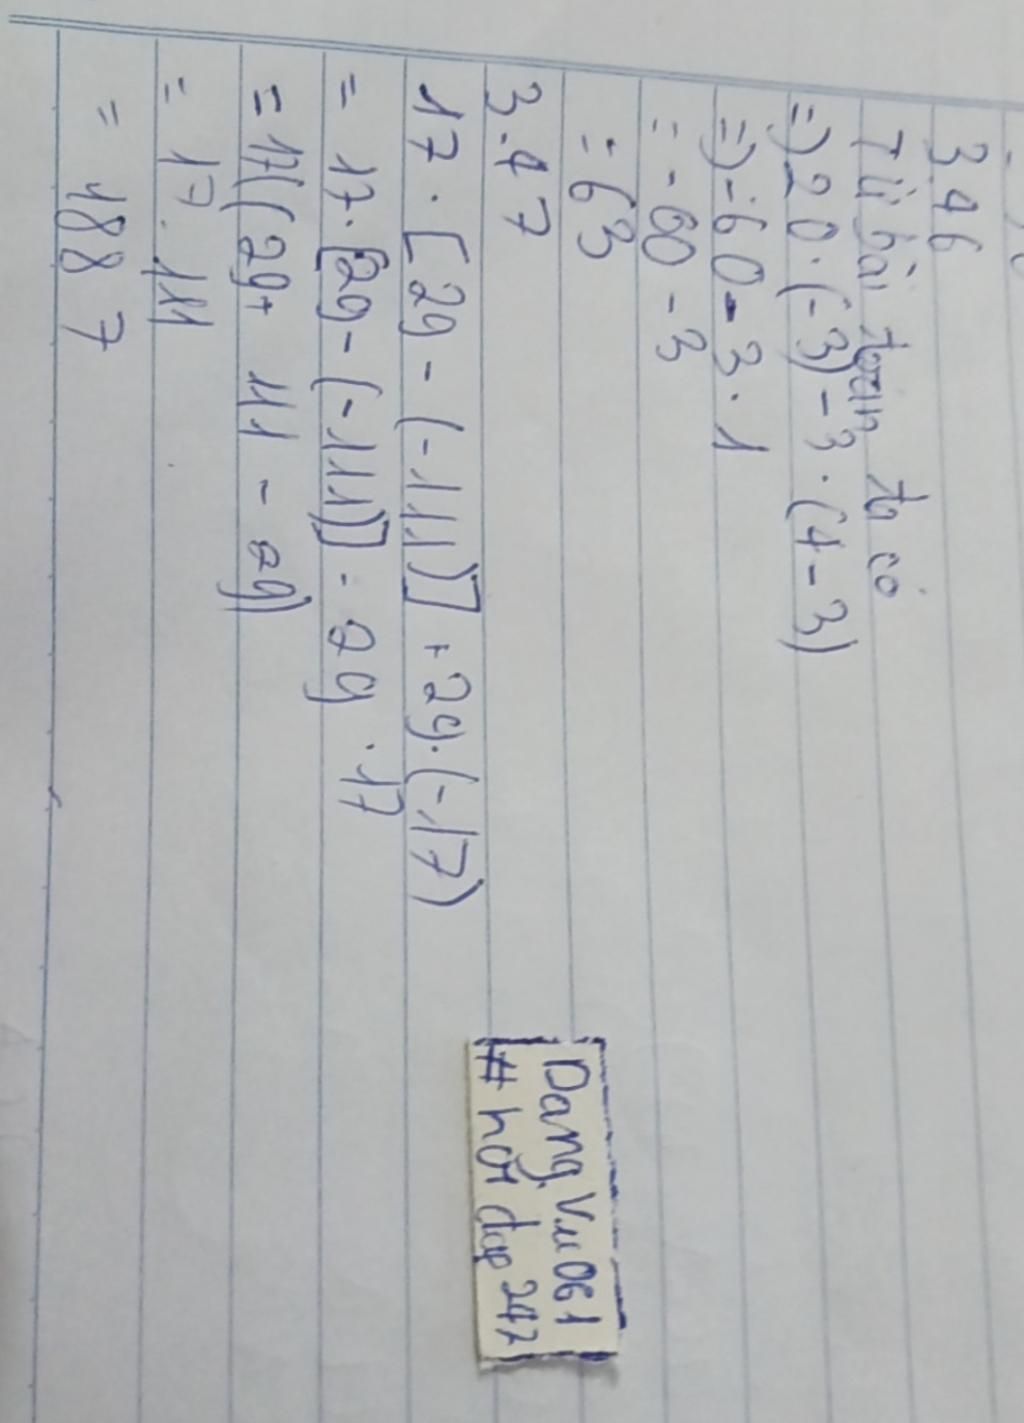 3.46
Từ bài toán ta có
=) 20.(-3) - 3.(4-3)
=) -60 - 3.1
= -60 - 3
= 63
3.47
17.[29 - (-111)] + 29.(-17)
= 17.[29 - (-111)] - 29.17
= 17((29+ 111 - 29)
= 17.111
= 1887
Dang Vu061
# hỏi đáp 247